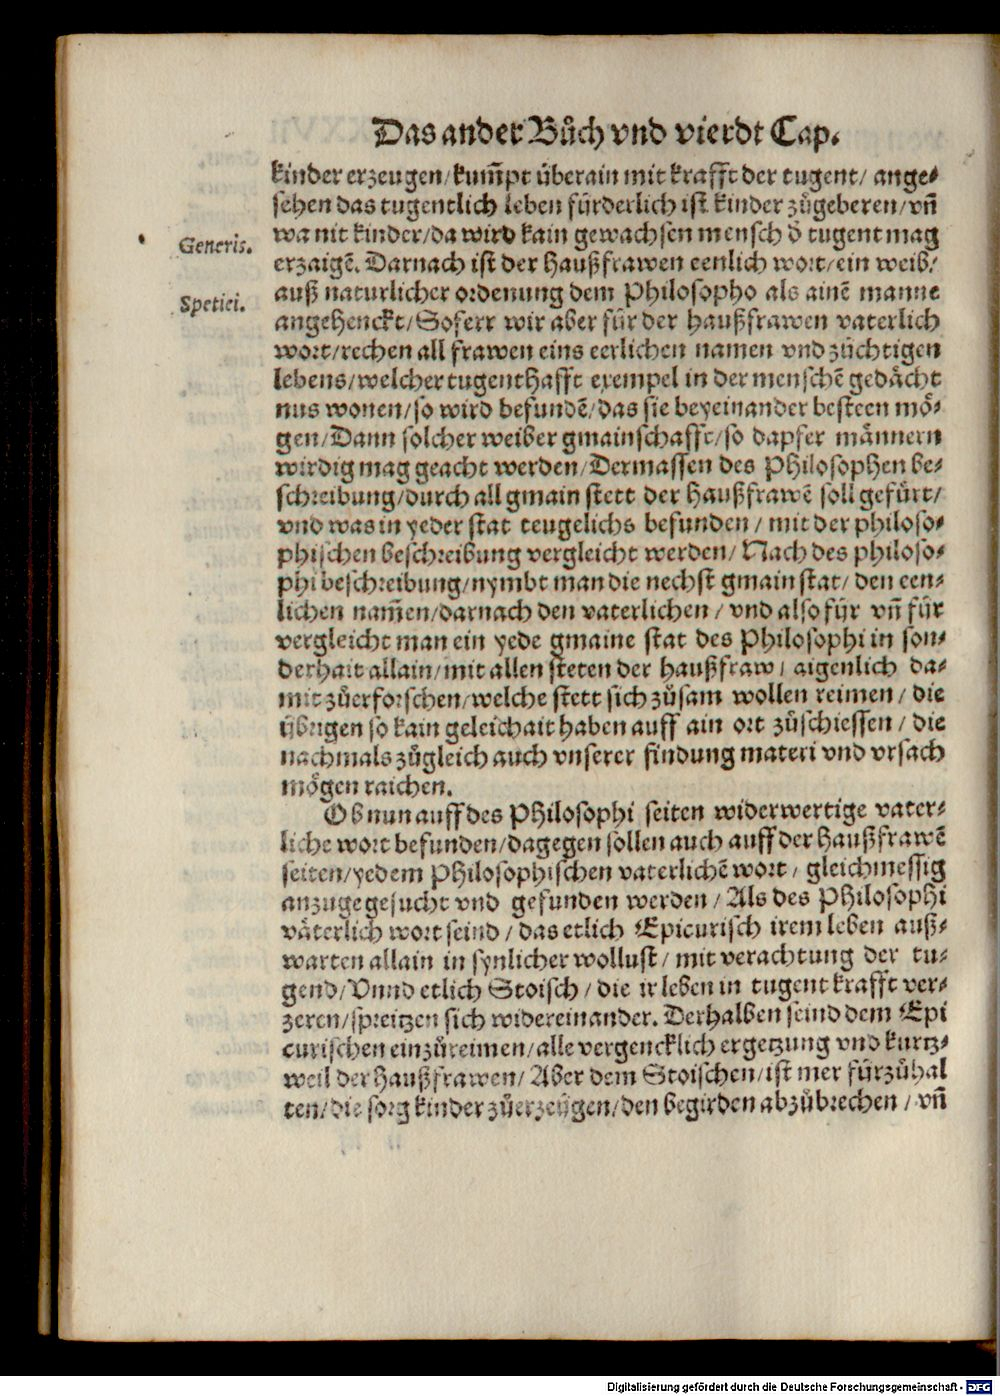 Das ander Bůch vnd vierdt Cap.
kinder erzeugen/kum̃pt überain mit krafft der tugent/ ange-
sehen das tugentlich leben fürderlich ist kinder zůgeberen/vñ
Generis.
wa nit kinder/da wird kain gewachsen mensch d̕ tugent mag
erzaigẽ. Darnach ist der haußfrawen eenlich wort/ein weib/
Spetiei.
auß naturlicher ordenung dem Philosopho als ainẽ manne
angehenckt/Soferr wir aber für der haußfrawen vaterlich
wort/rechen all frawen eins eerlichen namen vnd züchtigen
lebens/welcher tugenthafft exempel in der menschẽ gedächt
nus wonen/so wird befundẽ/das sie beyeinander besteen mö-
gen/Dann solcher weiber gmainschafft/so dapfer männern
wirdig mag geacht werden/Dermassen des Philosophen be-
schreibung/durch all gmain stett der haußfrawẽ soll gefürt/
vnd was in yeder stat teugelichs befunden/mit der philoso-
phischen beschreibung vergleicht werden/Nach des philoso-
phi beschreibung/nymbt man die nechst gmain stat/den een-
lichen nam̃en/darnach den vaterlichen/vnd also für vñ für
vergleicht man ein yede gmaine stat des Philosophi in son-
derhait allain/mit allen steten der haußfraw/aigenlich da-
mit zůerforschen/welche stett sich zůsam wollen reimen/die
übrigen so kain geleichait haben auff ain ort zůschiessen/die
nachmals zůgleich auch vnserer findung materi vnd vrsach
mögen raichen.
Ob nun auff des Philosophi seiten widerwertige vater-
liche wort befunden/dagegen sollen auch auff der haußfrawẽ
seiten/yedem Philosophischen vaterlichẽ wort/gleichmessig
anzuge gesucht vnd gefunden werden/Als des Philosophi
väterlich wort seind/das etlich Epicurisch irem leben auß-
warten allain in synlicher wollust/mit verachtung der tu-
gend/Vnnd etlich Stoisch/die ir leben in tugent krafft ver-
zeren/spreitzen sich widereinander. Derhalben seind dem Epi
curischen einzůreimen/alle vergencklich ergetzung vnd kurtz-
weil der haußfrawen/Aber dem Stoischen/ist mer fürzůhal
ten/die sorg kinder zůerzeügen/den begirden abzůbrechen/vñ
Digitalisierung gefördert durch die Deutsche Forschungsgemeinschaft - DFG